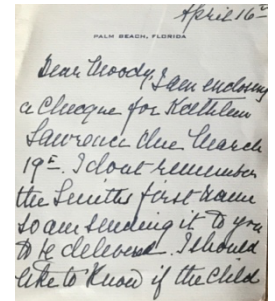 April 16th
PALM BEACH, FLORIDA
Dear Moody, I am enclosing
a cheque for Kathleen
Lawrence due March
19th. I dont remember
the Smiths first name
so am sending it to you
to be delivered. I should
like to know if the child